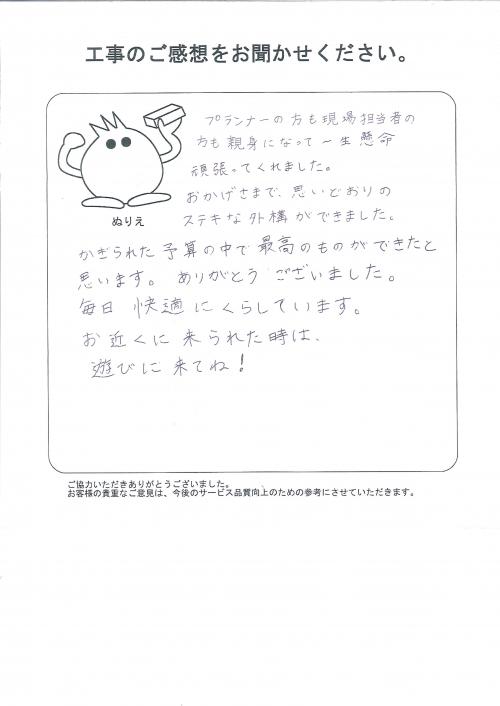 工事のご感想をお聞かせください。
プランナーの方も現場担当者の
方も親身になって一生懸命
頑張ってくれました。
おかげさまで、思いどおりの
ステキな外構ができました。
ぬりえ
かぎられた予算の中で最高のものができたと
思います。ありがとうございました。
毎日快適にくらしています。
お近くに来られた時は、
遊びに来てね!
ご協力いただきありがとうございました。
お客様の貴重なご意見は、今後のサービス品質向上のための参考にさせていただきます。